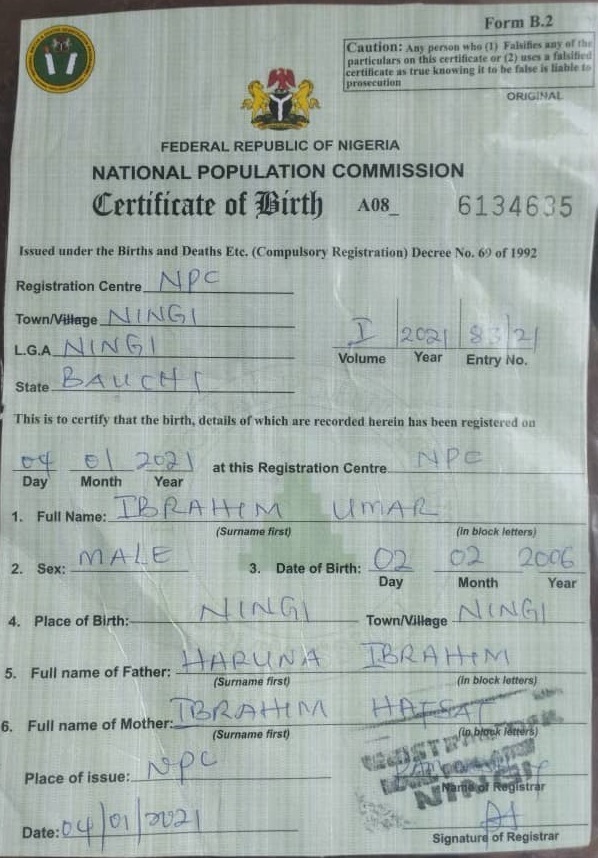 Form B.2
Caution: Any person who (1) Falsifies any of the
particulars on this certificate or (2) uses a falsified
certificate as true knowing it to be false is liable to
prosecution
ORIGINAL
FEDERAL REPUBLIC OF NIGERIA
NATIONAL POPULATION COMMISSION
Certificate of Birth A08_ 6134635
Issued under the Births and Deaths Etc. (Compulsory Registration) Decree No. 69 of 1992
Registration Centre NPC
Town/Village NINGI
L.G.A NINGI
I 2021 83/21
Volume Year Entry No.
State BAUCHI
This is to certify that the birth, details of which are recorded herein has been registered on
04 01 2021 at this Registration Centre NPC
Day Month Year
1. Full Name: IBRAHIM UMAR
(Surname first) (in block letters)
2. Sex: MALE 3. Date of Birth: 02 02 2006
Day Month Year
4. Place of Birth: NINGI Town/Village NINGI
5. Full name of Father: HARUNA IBRAHIM
(Surname first) (in block letters)
6. Full name of Mother: IBRAHIM HAFSAT
(Surname first) (in block letters)
Place of issue: NPC
NINGI
Name of Registrar
Date: 04/01/2021
Signature of Registrar